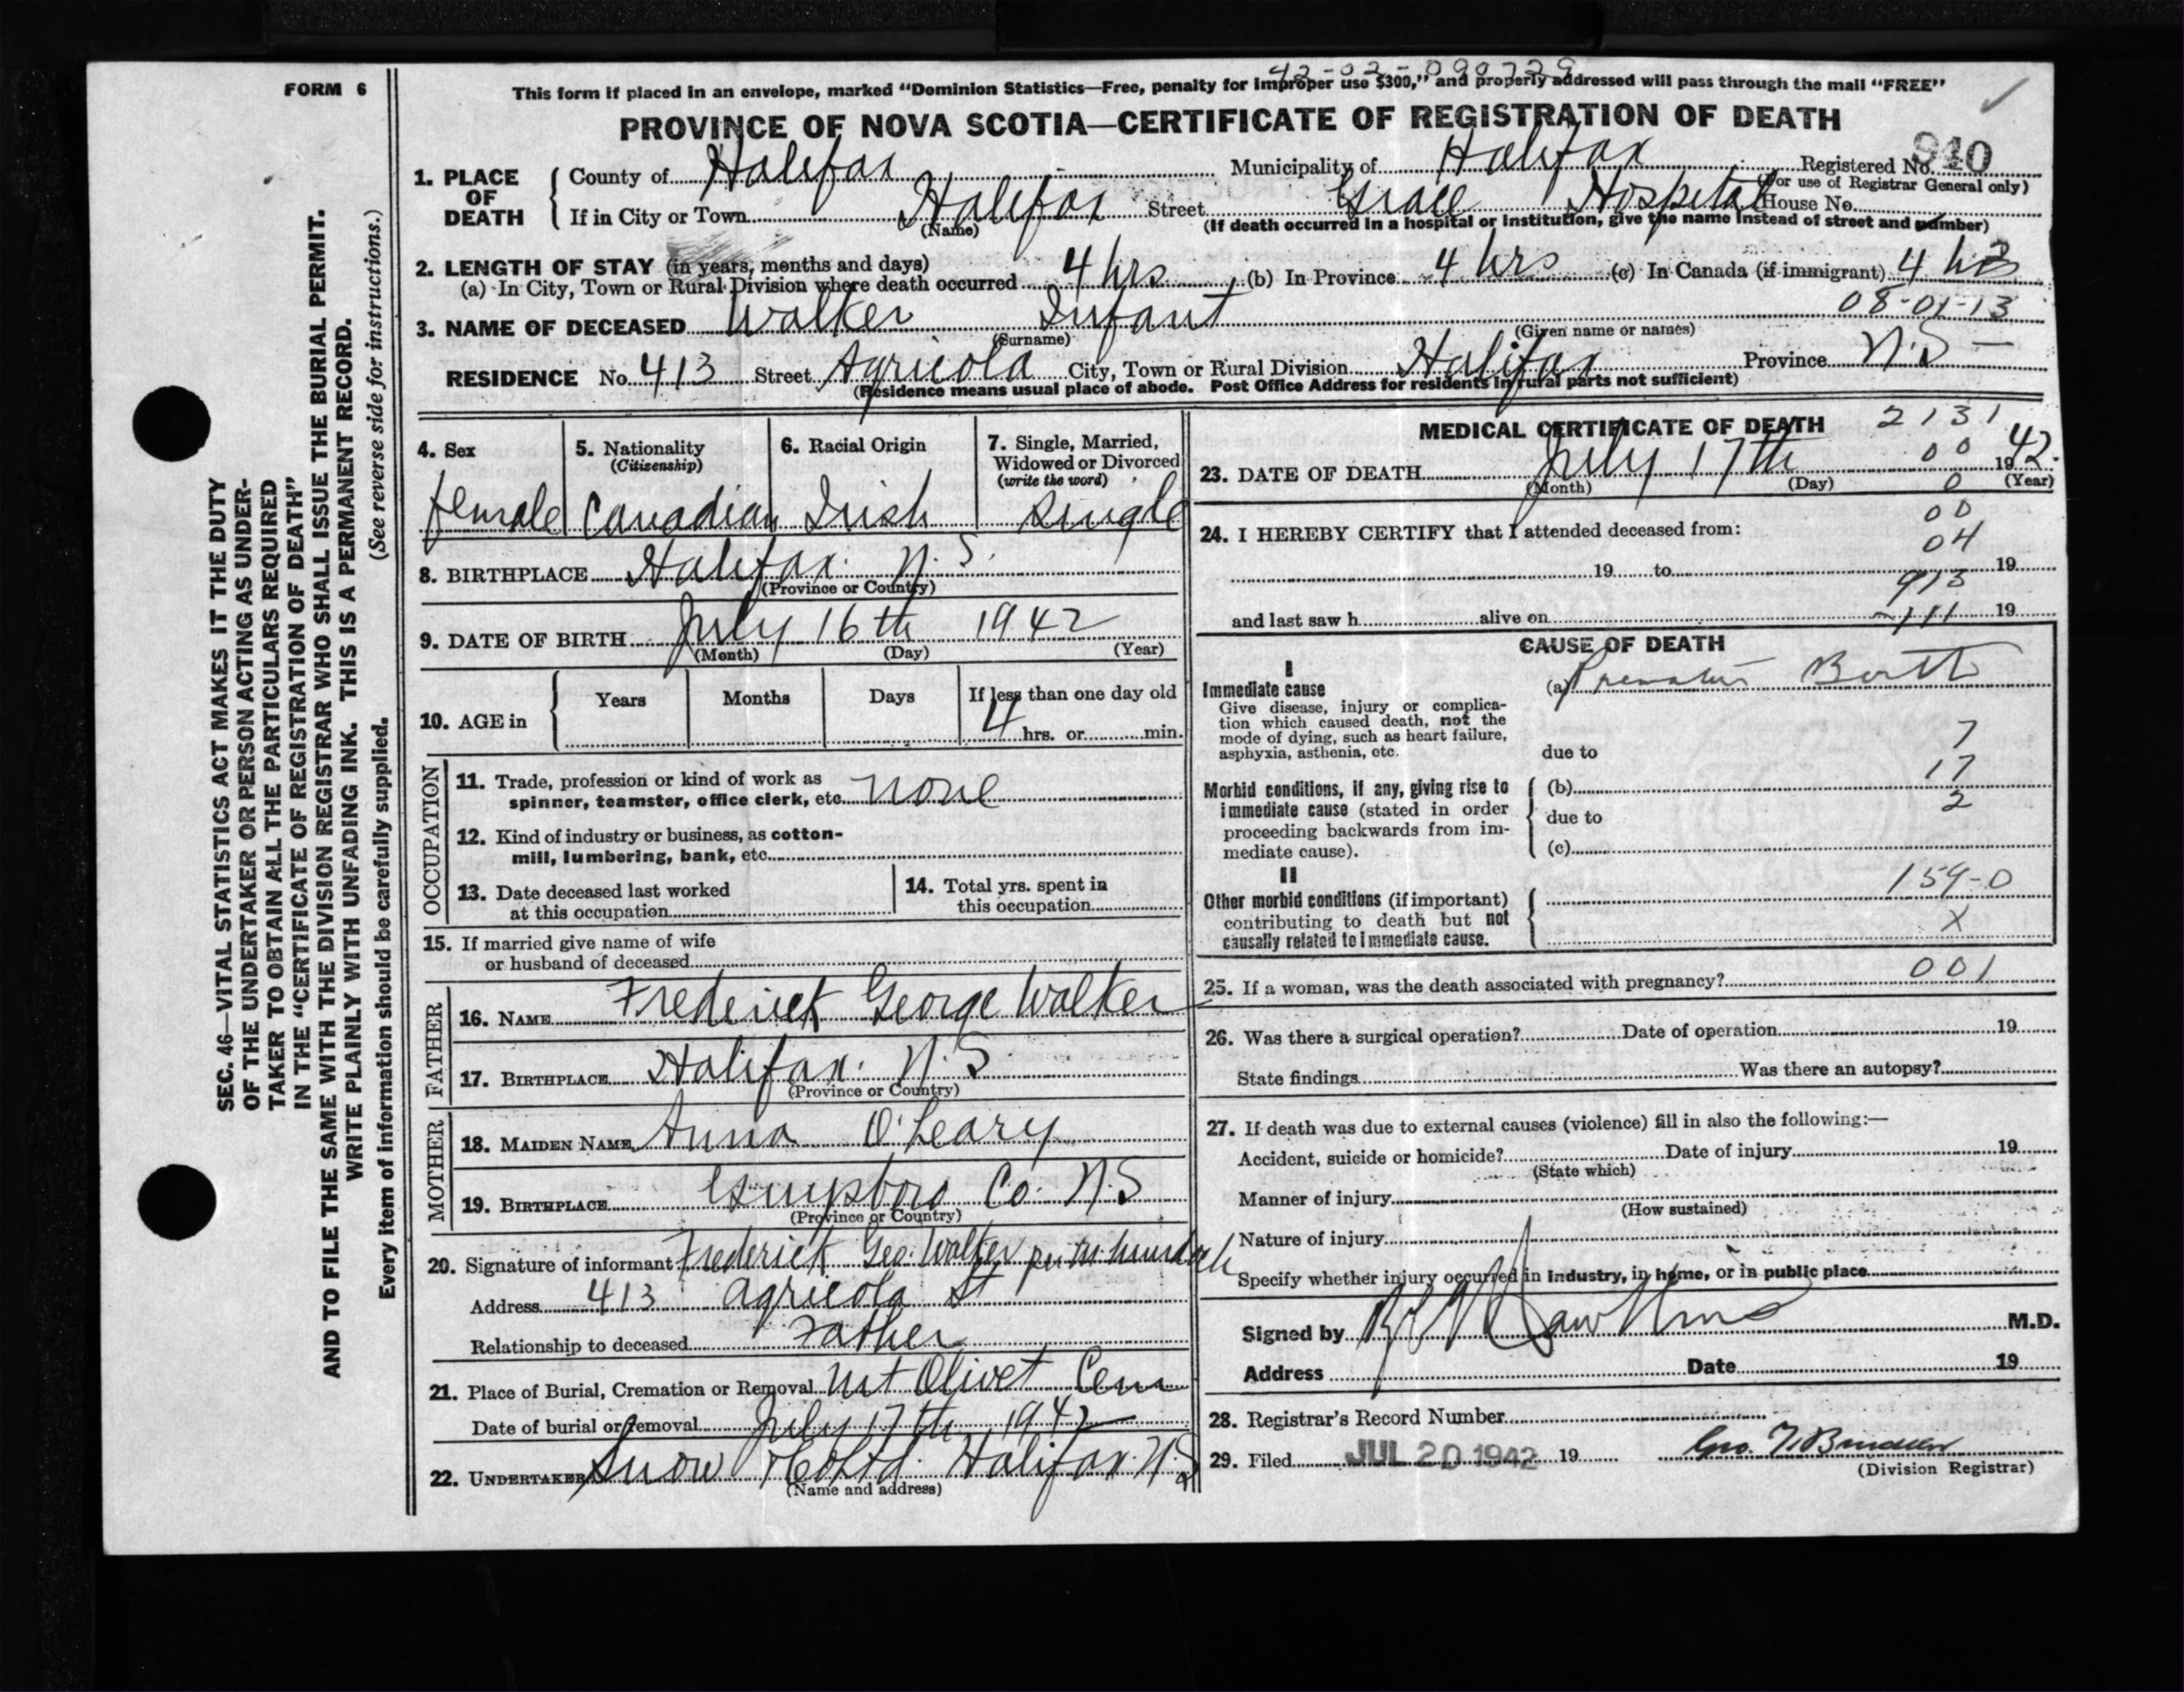 FORM 6
42-02-090729
This form if placed in an envelope, marked “Dominion Statistics—Free, penalty for improper use $300,” and properly addressed will pass through the mail “FREE”
PROVINCE OF NOVA SCOTIA—CERTIFICATE OF REGISTRATION OF DEATH
1. PLACE OF DEATH
County of Halifax Municipality of Halifax Registered No. 940
(For use of Registrar General only)
If in City or Town Halifax Street Grace Hospital House No.
(Name) (If death occurred in a hospital or institution, give the name instead of street and number)
2. LENGTH OF STAY (in years, months and days)
(a) In City, Town or Rural Division where death occurred 4 hrs (b) In Province 4 hrs (c) In Canada (if immigrant) 4 hrs
08-01-13
3. NAME OF DECEASED Walker Infant
(Surname) (Given name or names)
RESIDENCE No. 413 Street Agricola City, Town or Rural Division Halifax Province N.S —
(Residence means usual place of abode. Post Office Address for residents in rural parts not sufficient)
4. Sex
female
5. Nationality
(Citizenship)
Canadian
6. Racial Origin
Irish
7. Single, Married,
Widowed or Divorced
(write the word)
single
8. BIRTHPLACE Halifax. N.S.
(Province or Country)
9. DATE OF BIRTH July 16th 1942
(Month) (Day) (Year)
10. AGE in
Years Months Days If less than one day old
4 hrs. or min.
OCCUPATION
11. Trade, profession or kind of work as
spinner, teamster, office clerk, etc. none
12. Kind of industry or business, as cotton-
mill, lumbering, bank, etc.
13. Date deceased last worked
at this occupation
14. Total yrs. spent in
this occupation
15. If married give name of wife
or husband of deceased
FATHER
16. NAME Frederick George Walker
17. BIRTHPLACE Halifax. N.S.
(Province or Country)
MOTHER
18. MAIDEN NAME Anna O'Leary
19. BIRTHPLACE Guysboro Co. N.S
(Province or Country)
20. Signature of informant Frederick Geo. Walker per
Address 413 Agricola St
Relationship to deceased Father
21. Place of Burial, Cremation or Removal Mt Olivet Cem
Date of burial or removal July 17th 1942
22. UNDERTAKER Snow & Co Ltd. Halifax N.S
(Name and address)
MEDICAL CERTIFICATE OF DEATH 2131
00
23. DATE OF DEATH July 17th 1942.
(Month) (Day) (Year)
0
00
24. I HEREBY CERTIFY that I attended deceased from:
04
19 to 19
913
and last saw h alive on 19
111
CAUSE OF DEATH
I
Immediate cause
Give disease, injury or complica-
tion which caused death, not the
mode of dying, such as heart failure,
asphyxia, asthenia, etc.
(a) Premature Birth
7
due to
17
Morbid conditions, if any, giving rise to
immediate cause (stated in order
proceeding backwards from im-
mediate cause).
(b)
2
due to
(c)
II
Other morbid conditions (if important)
contributing to death but not
causally related to immediate cause.
159-0
X
25. If a woman, was the death associated with pregnancy? 001
26. Was there a surgical operation? Date of operation 19
State findings Was there an autopsy?
27. If death was due to external causes (violence) fill in also the following:—
Accident, suicide or homicide? Date of injury 19
(State which)
Manner of injury
(How sustained)
Nature of injury
Specify whether injury occurred in industry, in home, or in public place
Signed by M.D.
Address Date 19
28. Registrar's Record Number
29. Filed JUL 20 1942 19 Geo.
(Division Registrar)
SEC. 46—VITAL STATISTICS ACT MAKES IT THE DUTY
OF THE UNDERTAKER OR PERSON ACTING AS UNDER-
TAKER TO OBTAIN ALL THE PARTICULARS REQUIRED
IN THE “CERTIFICATE OF REGISTRATION OF DEATH”
AND TO FILE THE SAME WITH THE DIVISION REGISTRAR WHO SHALL ISSUE THE BURIAL PERMIT.
WRITE PLAINLY WITH UNFADING INK. THIS IS A PERMANENT RECORD.
(See reverse side for instructions.)
Every item of information should be carefully supplied.